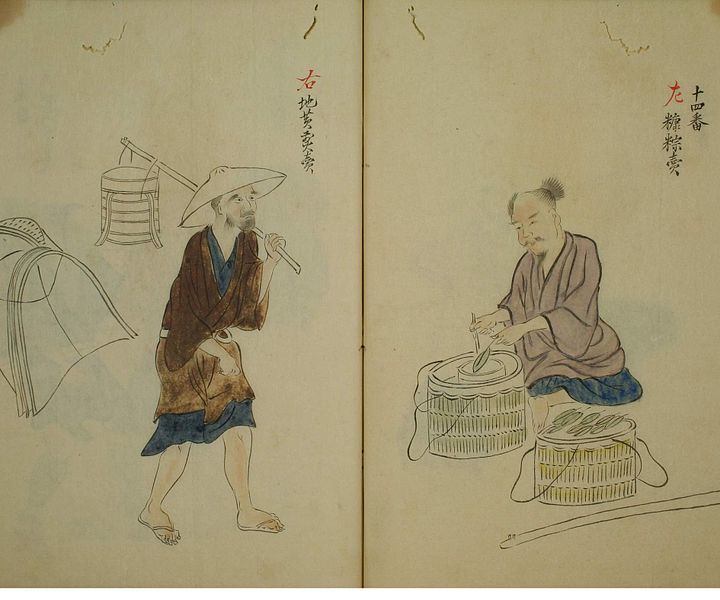 十四番
左 糖粽賣
右 地黄煎賣